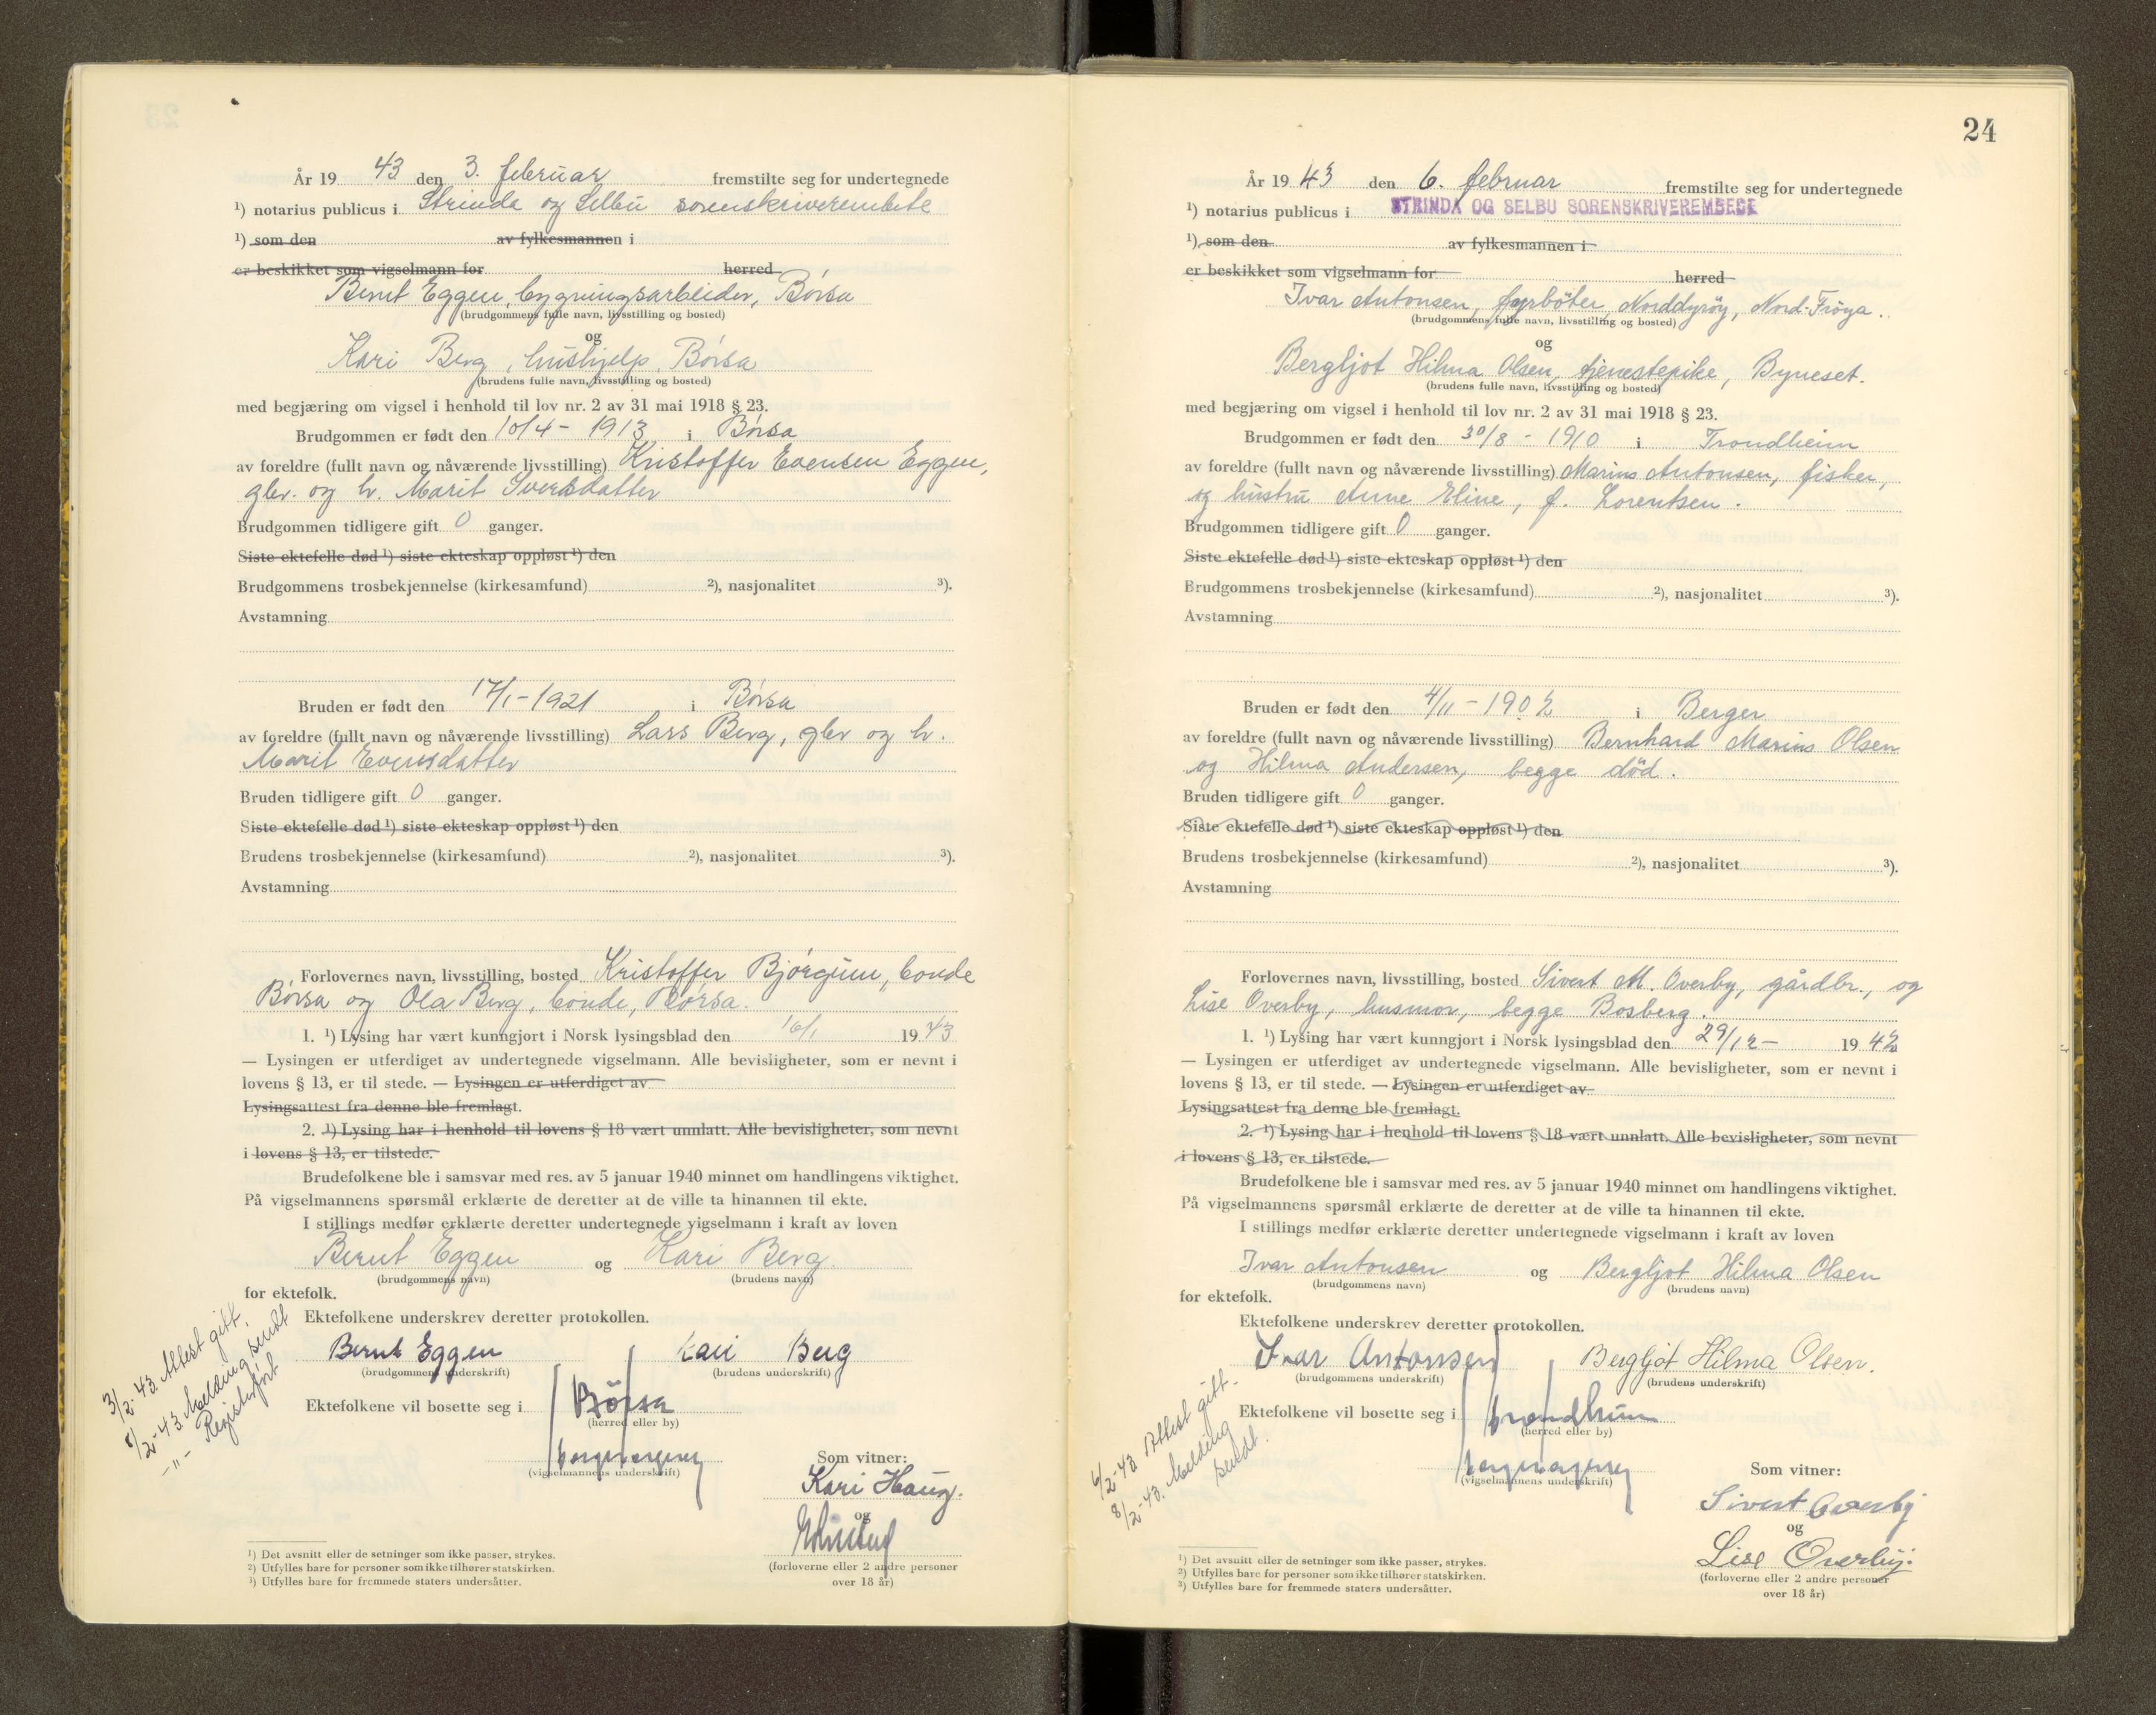 År 19 43 den 3. februar fremstilte seg for undertegnede
¹) notarius publicus i Strinda og Selbu sorenskriverembete
¹) som den av fylkesmannen i
er beskikket som vigselmann for herred
Bernt Eggen, bygningsarbeider, Børsa
(brudgommens fulle navn, livsstilling og bosted)
og
Kari Berg, hushjelp, Børsa
(brudens fulle navn, livsstilling og bosted)
med begjæring om vigsel i henhold til lov nr. 2 av 31 mai 1918 § 23.
Brudgommen er født den 10/4 - 1913 i Børsa
av foreldre (fullt navn og nåværende livsstilling) Kristoffer Evensen Eggen,
gbr. og h. Marit Iversdatter
Brudgommen tidligere gift 0 ganger.
Siste ektefelle død ¹) siste ekteskap oppløst ¹) den
Brudgommens trosbekjennelse (kirkesamfund) ²), nasjonalitet ³).
Avstamning
Bruden er født den 17/1 - 1921 i Børsa
av foreldre (fullt navn og nåværende livsstilling) Lars Berg, gbr og h.
Marit Evensdatter
Bruden tidligere gift 0 ganger.
Siste ektefelle død ¹) siste ekteskap oppløst ¹) den
Brudens trosbekjennelse (kirkesamfund) ²), nasjonalitet ³).
Avstamning
Forlovernes navn, livsstilling, bosted Kristoffer Bjørgum, bonde
Børsa og Ola Berg, bonde, Børsa.
1. ¹) Lysing har vært kunngjort i Norsk lysingsblad den 16/1 19 43
— Lysingen er utferdiget av undertegnede vigselmann. Alle bevisligheter, som er nevnt i
lovens § 13, er til stede. — Lysingen er utferdiget av
Lysingsattest fra denne ble fremlagt.
2. ¹) Lysing har i henhold til lovens § 18 vært unnlatt. Alle bevisligheter, som nevnt
i lovens § 13, er tilstede.
Brudefolkene ble i samsvar med res. av 5 januar 1940 minnet om handlingens viktighet.
På vigselmannens spørsmål erklærte de deretter at de ville ta hinannen til ekte.
I stillings medfør erklærte deretter undertegnede vigselmann i kraft av loven
Bernt Eggen og Kari Berg
(brudgommens navn) (brudens navn)
for ektefolk.
Ektefolkene underskrev deretter protokollen.
Bernt Eggen Kari Berg
(brudgommens underskrift) (brudens underskrift)
Ektefolkene vil bosette seg i Börsa
(herred eller by)
(vigselmannens underskrift)
Som vitner:
Kari Haug.
og
(forloverne eller 2 andre personer
over 18 år)
3/2-43. Attest gitt.
8/2-43. Melding sendt
-"- Registerført
¹) Det avsnitt eller de setninger som ikke passer, strykes.
²) Utfylles bare for personer som ikke tilhører statskirken.
³) Utfylles bare for fremmede staters undersåtter.
24
År 19 43 den 6. februar fremstilte seg for undertegnede
¹) notarius publicus i STRINDA OG SELBU SORENSKRIVEREMBEDE
¹) som den av fylkesmannen i
er beskikket som vigselmann for herred
Ivar Antonsen, fyrbøter, Norddyrøy, Nord-Frøya.
(brudgommens fulle navn, livsstilling og bosted)
og
Bergljot Hilma Olsen, tjenestepike, Byneset.
(brudens fulle navn, livsstilling og bosted)
med begjæring om vigsel i henhold til lov nr. 2 av 31 mai 1918 § 23.
Brudgommen er født den 30/8 - 1910 i Trondheim
av foreldre (fullt navn og nåværende livsstilling) Marius Antonsen, fisker,
og hustru Anne Eline, f. Lorentsen.
Brudgommen tidligere gift 0 ganger.
Siste ektefelle død ¹) siste ekteskap oppløst ¹) den
Brudgommens trosbekjennelse (kirkesamfund) ²), nasjonalitet ³).
Avstamning
Bruden er født den 4/11 - 1902 i Berger
av foreldre (fullt navn og nåværende livsstilling) Bernhard Marius Olsen
og Hilma Andersen, begge död.
Bruden tidligere gift 0 ganger.
Siste ektefelle død ¹) siste ekteskap oppløst ¹) den
Brudens trosbekjennelse (kirkesamfund) ²), nasjonalitet ³).
Avstamning
Forlovernes navn, livsstilling, bosted Sivert M. Overby, gårdbr., og
Lise Overby, husmor, begge Bosberg.
1. ¹) Lysing har vært kunngjort i Norsk lysingsblad den 29/12 - 19 42
— Lysingen er utferdiget av undertegnede vigselmann. Alle bevisligheter, som er nevnt i
lovens § 13, er til stede. — Lysingen er utferdiget av
Lysingsattest fra denne ble fremlagt.
2. ¹) Lysing har i henhold til lovens § 18 vært unnlatt. Alle bevisligheter, som nevnt
i lovens § 13, er tilstede.
Brudefolkene ble i samsvar med res. av 5 januar 1940 minnet om handlingens viktighet.
På vigselmannens spørsmål erklærte de deretter at de ville ta hinannen til ekte.
I stillings medfør erklærte deretter undertegnede vigselmann i kraft av loven
Ivar Antonsen og Bergljot Hilma Olsen
(brudgommens navn) (brudens navn)
for ektefolk.
Ektefolkene underskrev deretter protokollen.
Ivar Antonsen Bergljot Hilma Olsen.
(brudgommens underskrift) (brudens underskrift)
Ektefolkene vil bosette seg i Trondheim
(herred eller by)
(vigselmannens underskrift)
Som vitner:
Sivert Overby
og
Lise Overby.
(forloverne eller 2 andre personer
over 18 år)
6/2-43 Attest gitt.
8/2-43. Melding
sendt.
¹) Det avsnitt eller de setninger som ikke passer, strykes.
²) Utfylles bare for personer som ikke tilhører statskirken.
³) Utfylles bare for fremmede staters undersåtter.